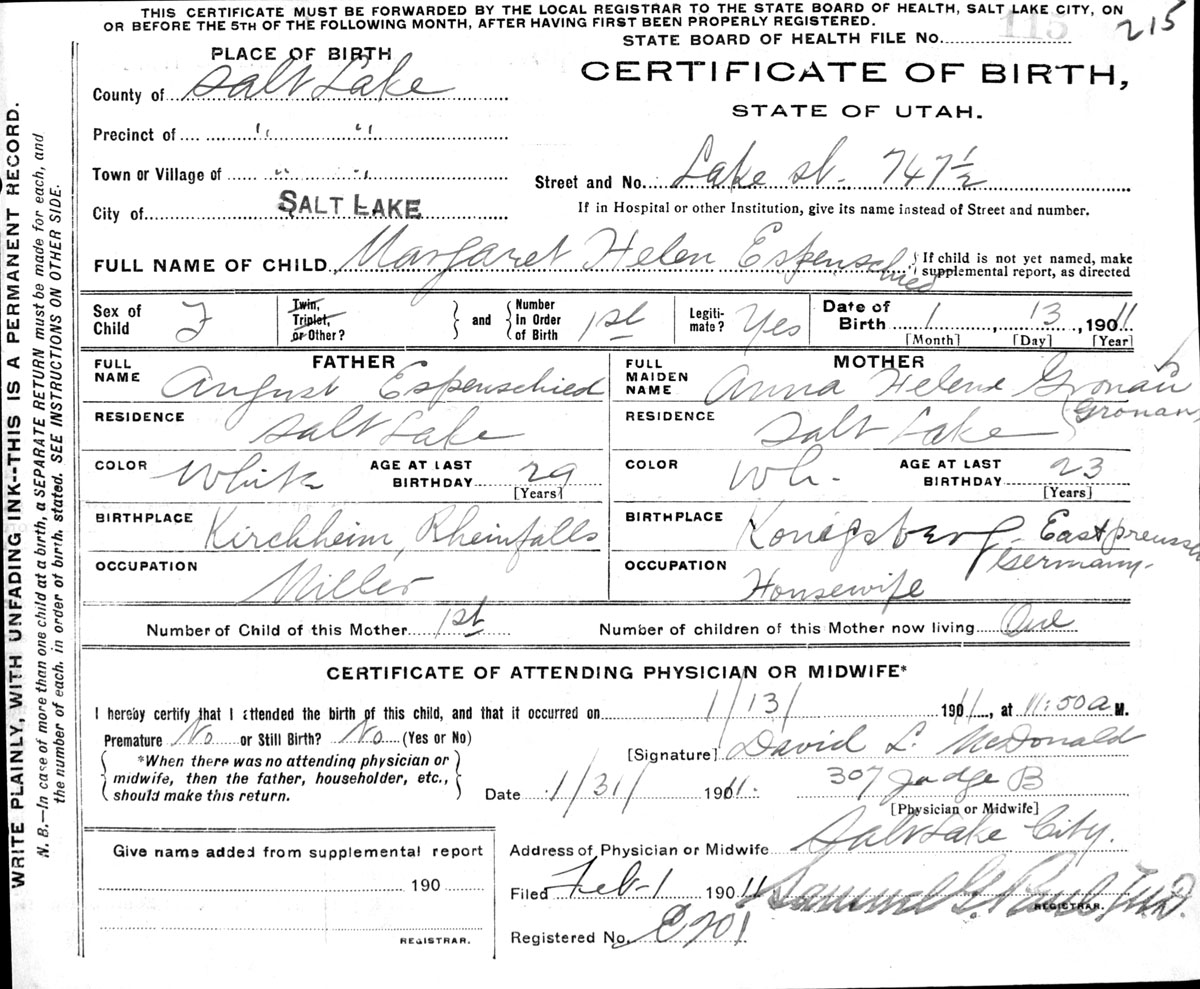 THIS CERTIFICATE MUST BE FORWARDED BY THE LOCAL REGISTRAR TO THE STATE BOARD OF HEALTH, SALT LAKE CITY, ON
OR BEFORE THE 5TH OF THE FOLLOWING MONTH, AFTER HAVING FIRST BEEN PROPERLY REGISTERED.
115
215
STATE BOARD OF HEALTH FILE No.
PLACE OF BIRTH
CERTIFICATE OF BIRTH,
STATE OF UTAH.
County of Salt Lake
Precinct of " "
Town or Village of " "
City of SALT LAKE
Street and No. Lake st. 747½
If in Hospital or other Institution, give its name instead of Street and number.
FULL NAME OF CHILD Margaret Helen Espenschied
If child is not yet named, make
supplemental report, as directed
Sex of Child F
Twin, Triplet, or Other?
and
Number In Order of Birth 1st
Legiti-mate? Yes
Date of Birth 1, 13, 1911
[Month] [Day] [Year]
FATHER
FULL NAME August Espenschied
RESIDENCE Salt Lake
COLOR White AGE AT LAST BIRTHDAY 29
[Years]
BIRTHPLACE Kirchheim, Rheinfalls
OCCUPATION Miller
MOTHER
FULL MAIDEN NAME Anna Helene Gronau
(Gronau)
RESIDENCE Salt Lake
COLOR Wh. AGE AT LAST BIRTHDAY 23
[Years]
BIRTHPLACE Konigsberg - Eastpreussen
Germany.
OCCUPATION Housewife
Number of Child of this Mother 1st Number of children of this Mother now living One
CERTIFICATE OF ATTENDING PHYSICIAN OR MIDWIFE*
I hereby certify that I attended the birth of this child, and that it occurred on 1/13/ 1911, at 11:50 a M.
Premature No or Still Birth? No (Yes or No)
*When there was no attending physician or
midwife, then the father, householder, etc.,
should make this return.
[Signature] David L. McDonald
Date 1/31/ 1911. 307 Judge B
[Physician or Midwife]
Address of Physician or Midwife Salt Lake City.
Give name added from supplemental report
190
REGISTRAR.
Filed Feb-1 1911 Samuel G. Paul M.D.
REGISTRAR.
Registered No. E201
WRITE PLAINLY, WITH UNFADING INK--THIS IS A PERMANENT RECORD.
N. B.—In case of more than one child at a birth, a SEPARATE RETURN must be made for each, and
the number of each, in order of birth, stated. SEE INSTRUCTIONS ON OTHER SIDE.